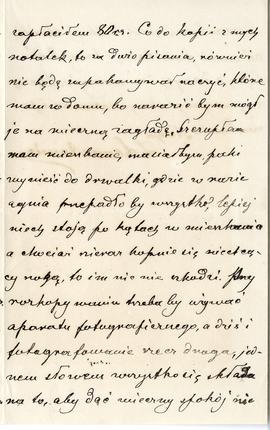 zapłaciłem 80 cs. Co do kopii z mych
notatek, to za dużo pisania, również
nie będę zapakowywał naczyń, które
mam w domu, bo naraziłbym mógł
je na wieczną zagładę. Szczupłe
mam mieszkanie, musiałbym paki
wynieść do drwalki, gdzie w razie
ognia przepadłoby wszystko, lepiej
niech stoją po kątach w mieszkaniu
a chociaż nieraz kopnie się niechcą-
cy nogą, to im nic nie szkodzi. Przy
rozkopywaniu trzeba by używać
aparatu fotograficznego, a dziś i
fotografowanie rzecz droga, jed-
nem słowem wszystko się składa
na to, aby dać wieczny spokój nie